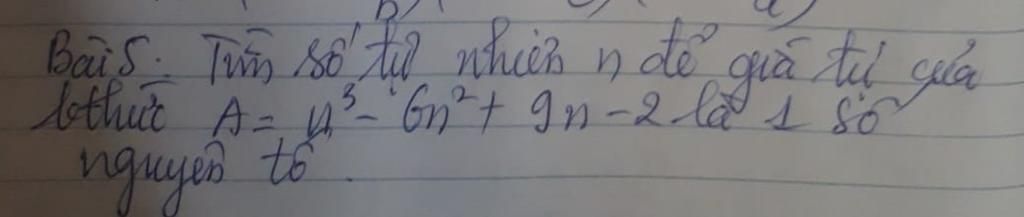 Bài 5: Tìm số tự nhiên n để giá trị của
bthức A = n³ - 6n² + 9n - 2 là 1 số
nguyên tố.